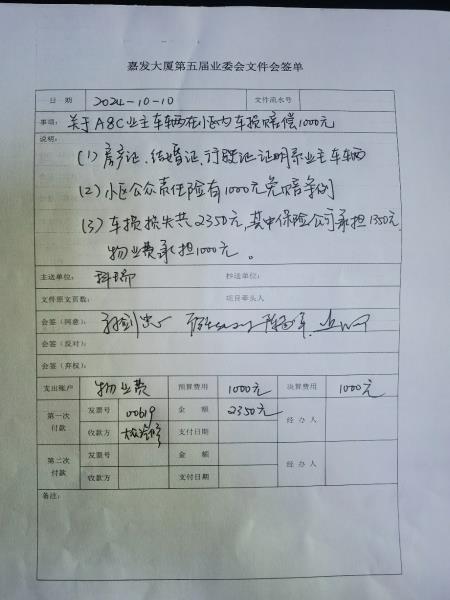 嘉发大厦第五届业委会文件会签单
日 期 2024-10-10 文件流水号
事项: 关于A8C业主车辆在小区内车损赔偿1000元
说明:
(1) 房产证、结婚证、行驶证证明系业主车辆
(2) 小区公众责任险有1000元免赔条例
(3) 车损损失共2350元,其中保险公司承担1350元,
物业费承担1000元。
主送单位: 科瑞 抄送单位:
文件原文页数: 项目牵头人
会签(同意):
会签(反对):
会签(弃权):
支出账户 物业费 预算费用 1000元 决算费用 1000元
第一次付款 发票号 00619 金 额 2350元 经 办 人
收款方 支付日期
第二次付款 发票号 金 额 经 办 人
收款方 支付日期
备注: